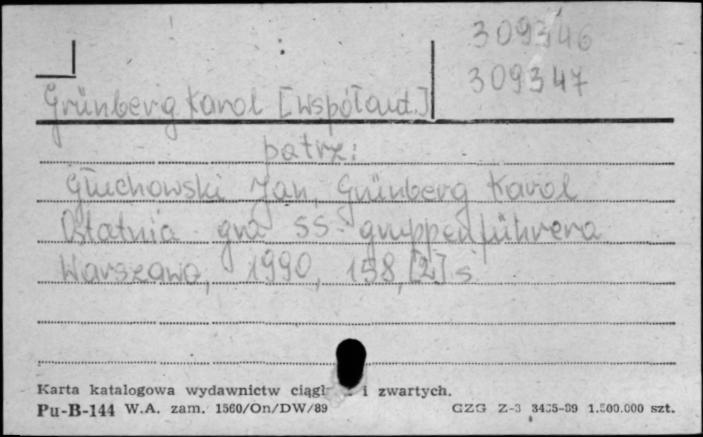 309346
309347
Grünberg Karol [współaut.]
patrz:
Głuchowski Jan, Grünberg Karol
Ostatnia gra SS-gruppenführera
Warszawa, 1990, 158, [2] s
Karta katalogowa wydawnictw i zwartych.
Pu-B-144 W.A. zam. 1560/On/DW/89 GZG Z-3 3435-89 1.500.000 szt.